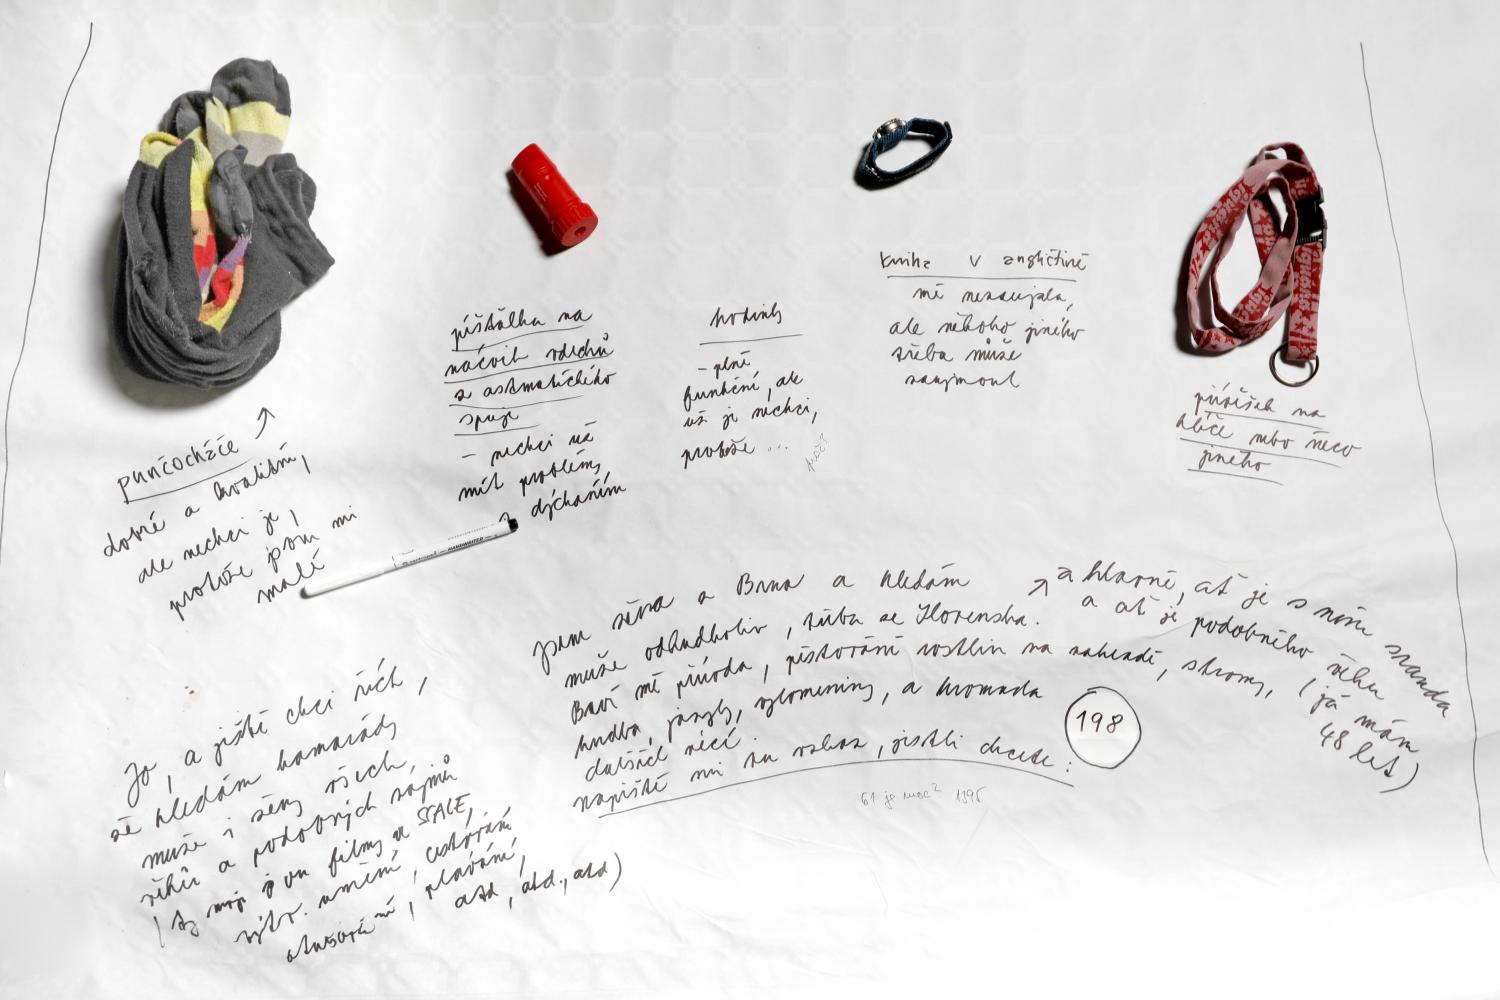 punčocháče
dobré a kvalitní,
ale nechci je,
protože jsou mi
malé
píšťalka na
nácvik vdechů
z astmatického
spreje
- nechci už
mít problémy
s dýcháním
hodinky
- plně
funkční, ale
už je nechci,
protože ...
proč?
kniha v angličtině
mě nezaujala,
ale někoho jiného
třeba může
zaujmout
přívěsek na
klíče nebo něco
jiného
Iguana
Jsem žena z Brna a hledám
muže odkudkoliv, třeba ze Slovenska.
Baví mě příroda, pěstování rostlin na zahradě, stromy,
hudba, jazyky, vzpomínky, a hromada
dalších věcí.
Napiště mi na vzkaz, jestli chcete:
198
a hlavně, ať je s ním sranda
a ať je podobného věku
(já mám
48 let)
61 je moc? 1396
Jo, a ještě chci říct,
že hledám kamarády
muže i ženy všech
věků a podobných zájmů
(ty moje jsou filmy ve STALE,
výtv. umění, cestování
, plavání,
atd, atd., atd)